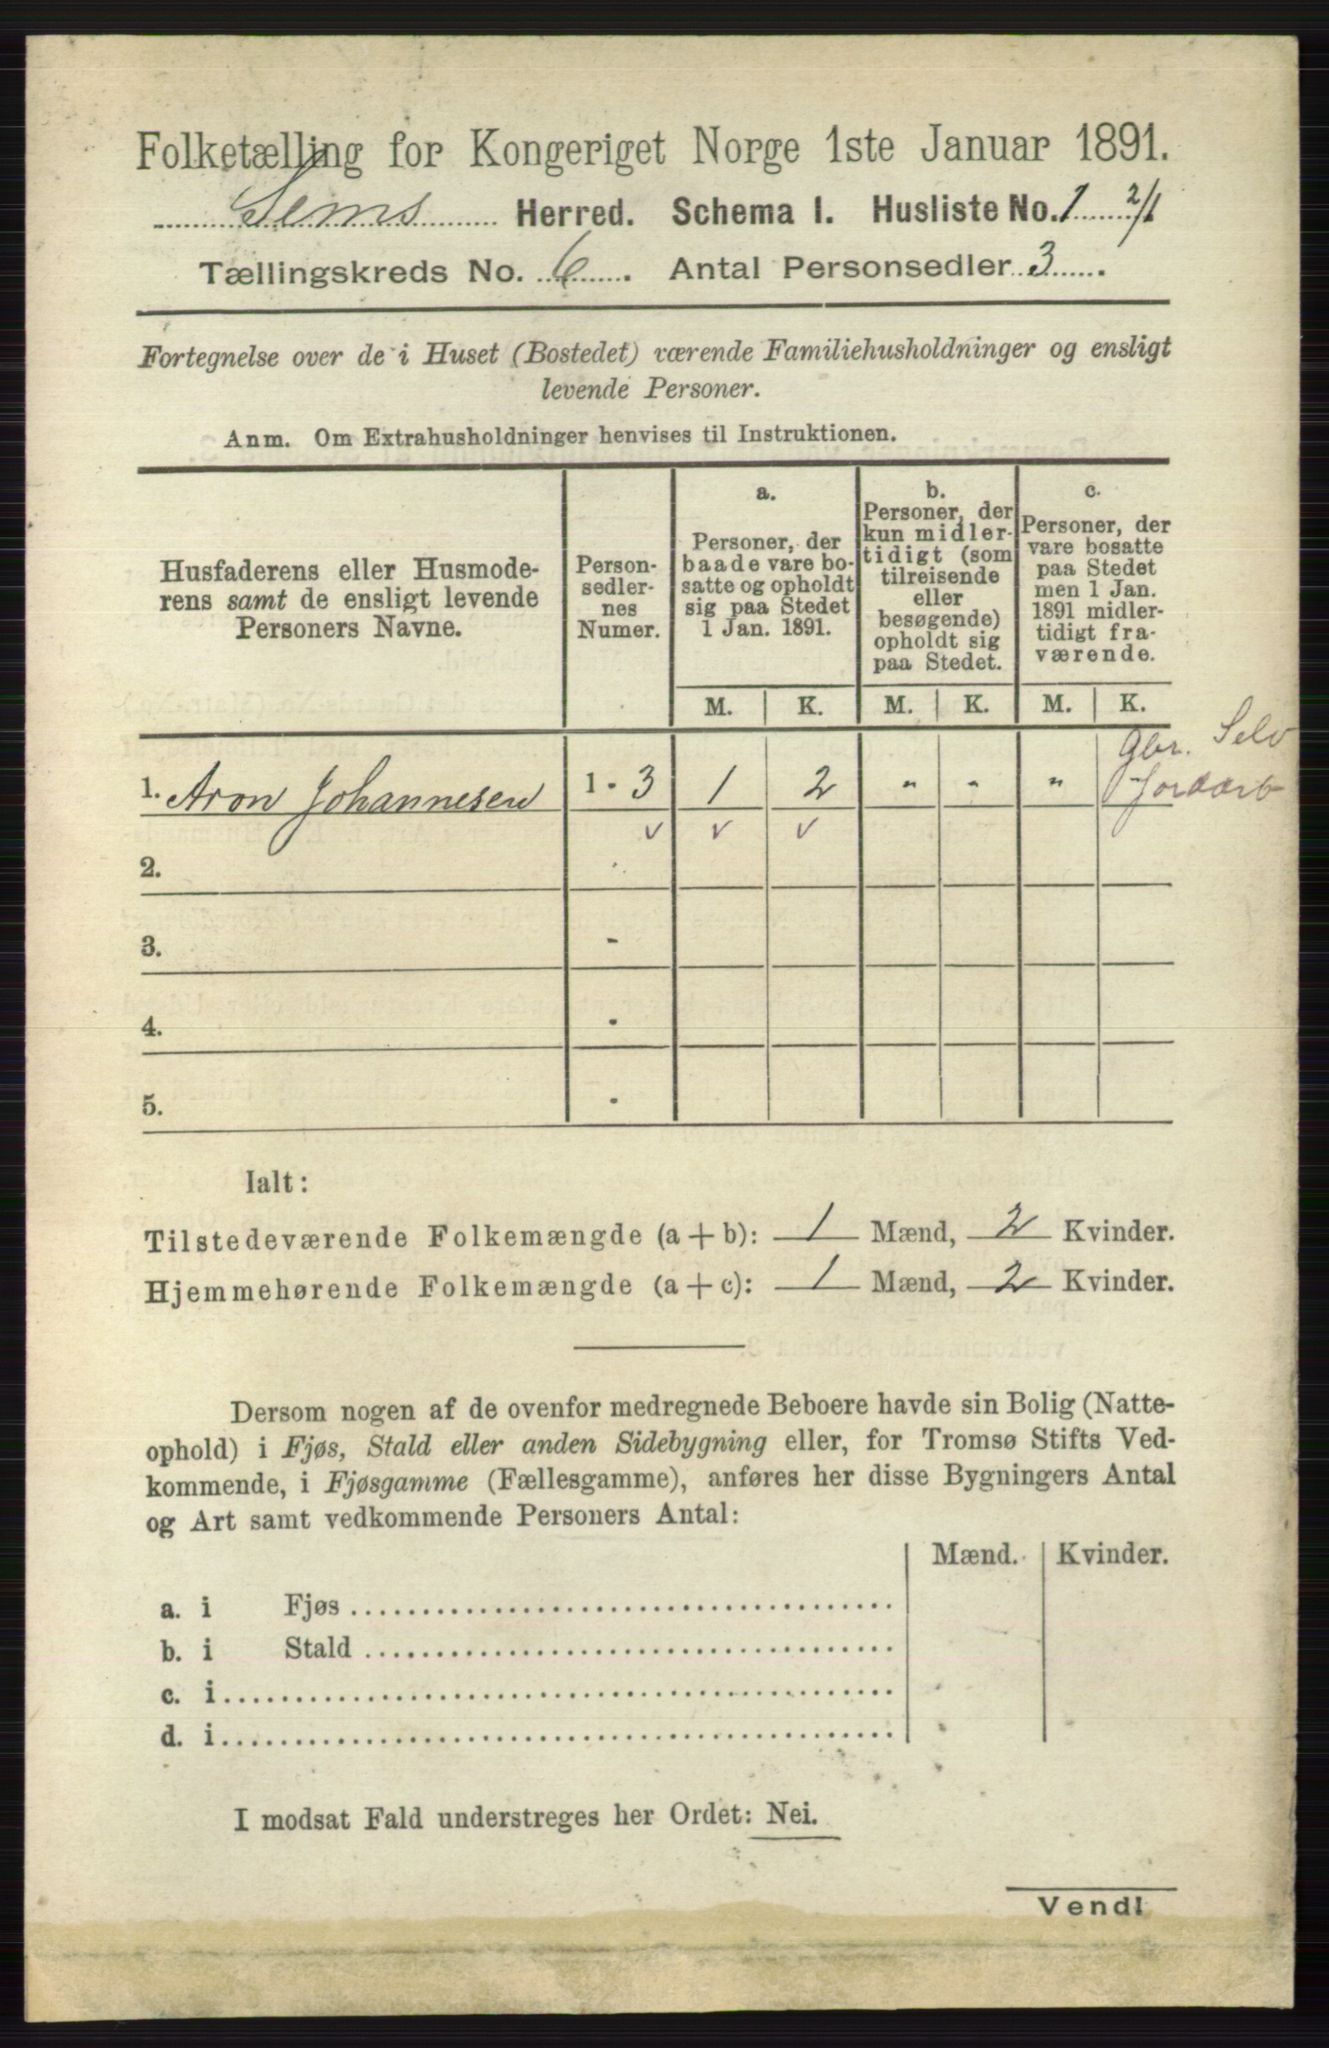 Folketælling for Kongeriget Norge 1ste Januar 1891.
Sems Herred. Schema I. Husliste No. 1 2/1
Tællingskreds No. 6. Antal Personsedler 3.
Fortegnelse over de i Huset (Bostedet) værende Familiehusholdninger og ensligt
levende Personer.
Anm. Om Extrahusholdninger henvises til Instruktionen.
Husfaderens eller Husmode-
rens samt de ensligt levende
Personers Navne.
Person-
sedler-
nes
Numer.
a.
Personer, der
baade vare bo-
satte og opholdt
sig paa Stedet
1 Jan. 1891.
b.
Personer, der
kun midler-
tidigt (som
tilreisende
eller
besøgende)
opholdt sig
paa Stedet.
c.
Personer, der
vare bosatte
paa Stedet
men 1 Jan.
1891 midler-
tidigt fra-
værende.
M. K. M. K. M. K.
Gbr. Selv
Jordarb
1. Aron Johannesen 1 - 3 1 2 " " "
v v v
2.
3. -
4. -
5. -
Ialt:
Tilstedeværende Folkemængde (a + b): 1 Mænd, 2 Kvinder.
Hjemmehørende Folkemængde (a + c): 1 Mænd, 2 Kvinder.
Dersom nogen af de ovenfor medregnede Beboere havde sin Bolig (Natte-
ophold) i Fjøs, Stald eller anden Sidebygning eller, for Tromsø Stifts Ved-
kommende, i Fjøsgamme (Fællesgamme), anføres her disse Bygningers Antal
og Art samt vedkommende Personers Antal:
Mænd. Kvinder.
a. i Fjøs
b. i Stald
c. i
d. i
I modsat Fald understreges her Ordet: Nei.
Vend!